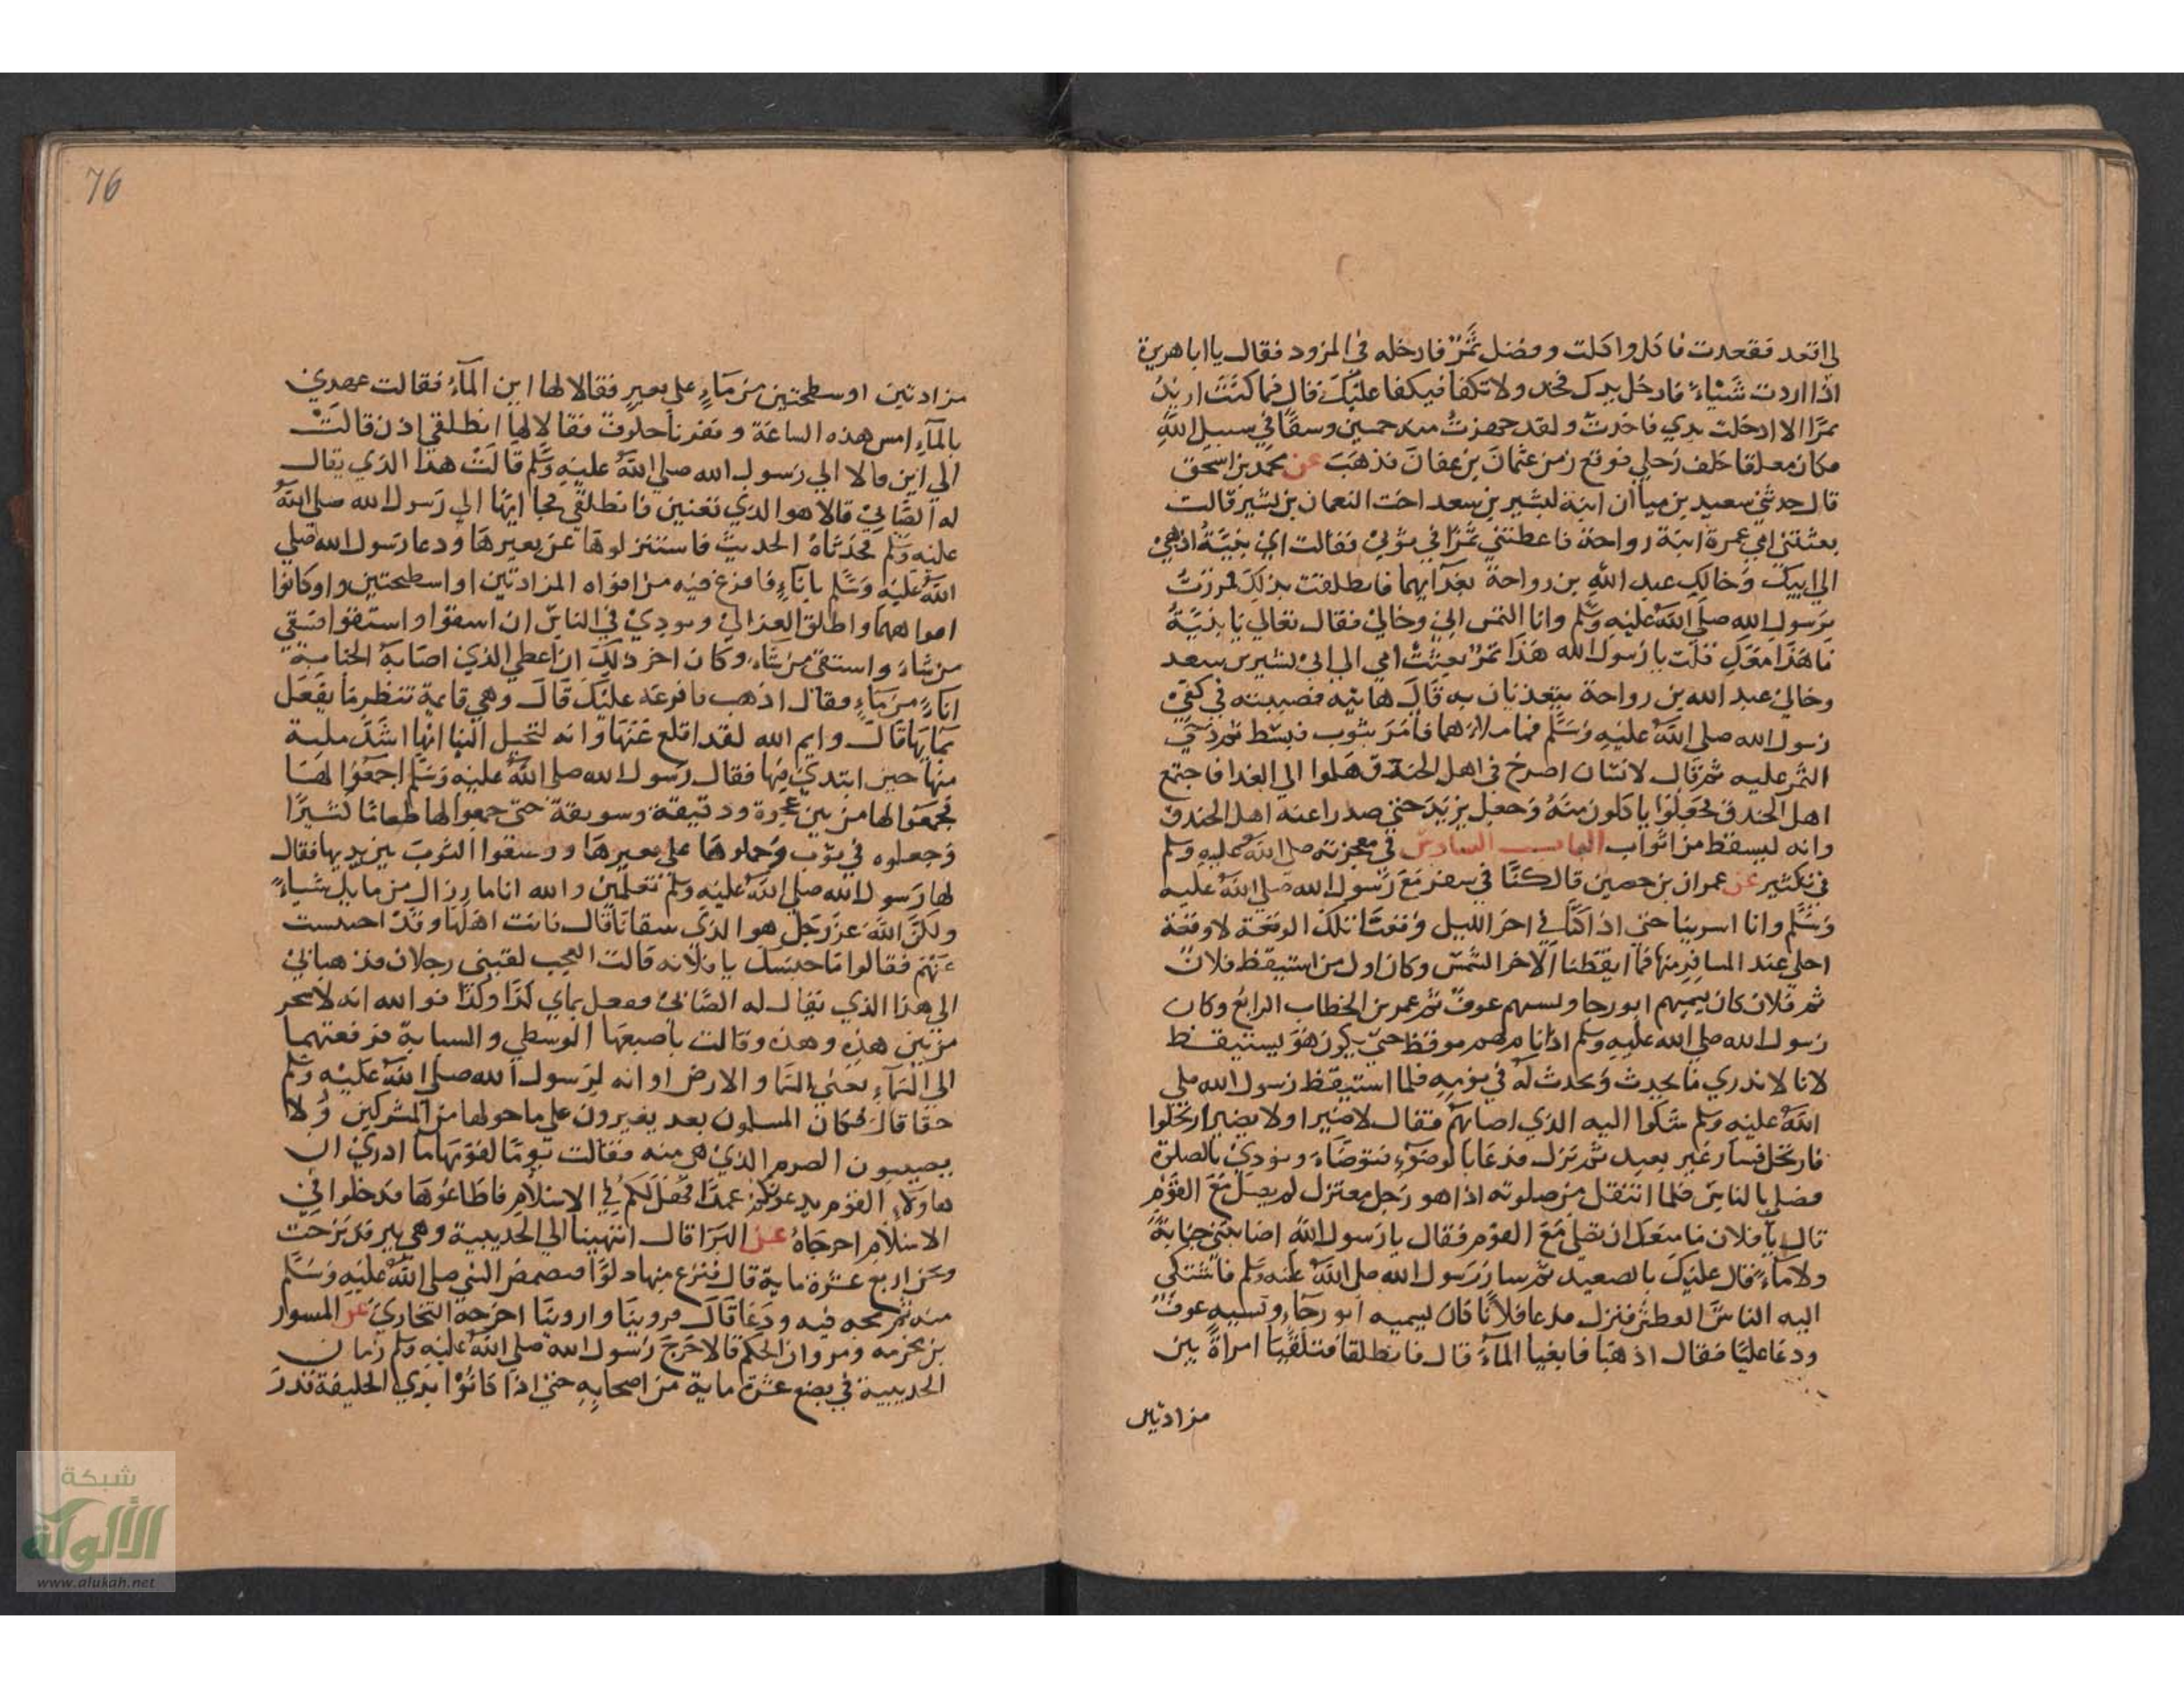 لي اقعد فقعدت فاكل واكلت وفضل تمر فادخله في المزود فقال يا ابا هريرة
اذا اردت شيأً فادخل يدك فخذ ولا تكفا فيكفا عليك قال فما كنت اريد
تمرا الا ادخلت يدي فاخذت ولقد جهزت منه خمسين وسقا في سبيل الله
وكان معلقا خلف رحلي فوقع زمن عثمان بن عفان فذهب عن محمد بن اسحق
قال حدثني سعيد بن مينا ان ابنة لبشير بن سعد اخت النعمان بن بشير قالت
بعثتني امي عمرة ابنة رواحة فاعطتني تمرا في ثوبي فقالت اي بنية اذهبي
الي ابيك وخالك عبد الله بن رواحة بغدآيهما فانطلقت بذلك فمررت
برسول الله صلى الله عليه وسلم وانا التمس ابي وخالي فقال تعالي يا بنية
ما هذا معك قلت يا رسول الله هذا تمر بعثت امي الي ابي بشير بن سعد
وخالي عبد الله بن رواحة يتغذيان به قال هاتيه فصببته في كفي
رسول الله صلى الله عليه وسلم فما ملاهما فامر بثوب فبسط ثم دحي
التمر عليه ثم قال لانسان اصرخ في اهل الخندق هلموا الي الغدا فاجتمع
اهل الخندق فجعلوا ياكلون منه وجعل يزيد حتي صدر اعنه اهل الخندق
وانه ليسقط من اثواب الباب السادس في معجزته صلى الله عليه وسلم
في تكثير عن عمران بن حصين قال كنا في سفر مع رسول الله صلى الله عليه
وسلم وانا اسرينا حتي اذا كنا في اخر الليل وقعنا تلك الوقعة لا وقعة
احلي عند المسافر منها فما ايقظنا الا حر الشمس وكان اول من استيقظ فلان
ثم فلان كان يسميهم ابو رجا ونسيهم عوف ثم عمر بن الخطاب الرابع وكان
رسول الله صلى الله عليه وسلم اذا نام لم يوقظ حتي يكون هو يستيقظ
لانا لا ندري ما يحدث وحدث له في نومه فلما استيقظ رسول الله صلى
الله عليه وسلم شكوا اليه الذي اصابهم فقال لا ضير او لا يضير ارتحلوا
فارتحل فسار غير بعيد ثم نزل فدعا بالوضوء فتوضاء ونودي بالصلاة
فصلي بالناس فلما انتقل من صلوته اذا هو رجل معتزل لم يصل مع القوم
قال يا فلان ما منعك ان تصلي مع القوم فقال يا رسول الله اصابتني جنابة
ولا ماء قال عليك بالصعيد ثم سار رسول الله صلى الله عليه وسلم فاشتكي
اليه الناس العطش فنزل فدعا فلانا كان يسميه ابو رجاء ونسيه عوف
ودعا عليا فقال اذهبا فابغيا المآء قال فانطلقا فتلقيا امراة بين
مزادتين
76
مزادتين او سطحتين من مآء علي بعير فقالا لها اين المآء فقالت عهدي
بالمآء امس هذه الساعة ونفرنا خلوف فقالا لها انطلقي اذن قالت
الي اين قالا الي رسول الله صلى الله عليه وسلم قالت هذا الذي يقال
له الصابي قالا هو الذي تعنين فانطلقي فجاآ بها الي رسول الله صلى الله
عليه وسلم فحدثاه الحديث فاستنزلوها عن بعيرها ودعا رسول الله صلى
الله عليه وسلم بانآء فافرغ فيه من افواه المزادتين او اسطحتين واوكانوا
افواههما واطلق العزالي ونودي في الناس ان اسقوا واستقوا فسقي
من شاء واستقي من شاء وكان اخر ذلك ان اعطي الذي اصابه الجنابة
انآء من مآء وقال اذهب فافرغه عليك قال وهي قايمة تنظر ما يفعل
بمايها قال وايم الله لقد اقلع عنها وانه لتخيل الينا انها اشد ملية
منها حين ابتدي فيها فقال رسول الله صلى الله عليه وسلم اجمعوا لها
فجمعوا لها من بين عجوة ودقيقة وسويقة حتي جمعوا لها طعاما كثيرا
وجعلوه في ثوب وحملوها علي بعيرها ووضعوا الثوب بين يديها فقال
لها رسول الله صلى الله عليه وسلم تعلمين والله انا ما رزال من مايك شياء
ولكن الله عز وجل هو الذي سقانا قال فاتت اهلها وقد احتبست
عنهم فقالوا ما حبسك يا فلانه قالت العجب لقيني رجلان فذهبا بي
الي هذا الذي يقال له الصابي ففعل بماي كذا وكذا فو الله انه لاسحر
من بين هذه وهذه وقالت باصبعها الوسطي والسبابة فرفعتهما
الي السمآء يعني السما والارض او انه لرسول الله صلى الله عليه وسلم
حقا قال فكان المسلمون بعد يغيرون علي ما حولها من المشركين ولا
يصيبون الصرم الذي هي منه فقالت يوما لقومها ما ادري ان
هاولآء القوم يدعونكم عمدا فهل لكم في الاسلام فاطاعوها فدخلوا في
الاسلام اخرجاه عن البرا قال انتهينا الي الحديبية وهي بير قد نزحت
ونحن اربع عشرة ماية قال فنزع منها دلوا فتمضمض النبي صلى الله عليه وسلم
منه ثم مجه فيه ودعا قال فروينا واروينا اخرجه البخاري عن المسور
بن مخرمه ومروان الحكم قالا خرج رسول الله صلى الله عليه وسلم زمان
الحديبية في بضع عشرة ماية من اصحابه حتي اذا كانوا بذي الحليفة قلد
شبكة
الألوكة
www.alukah.net